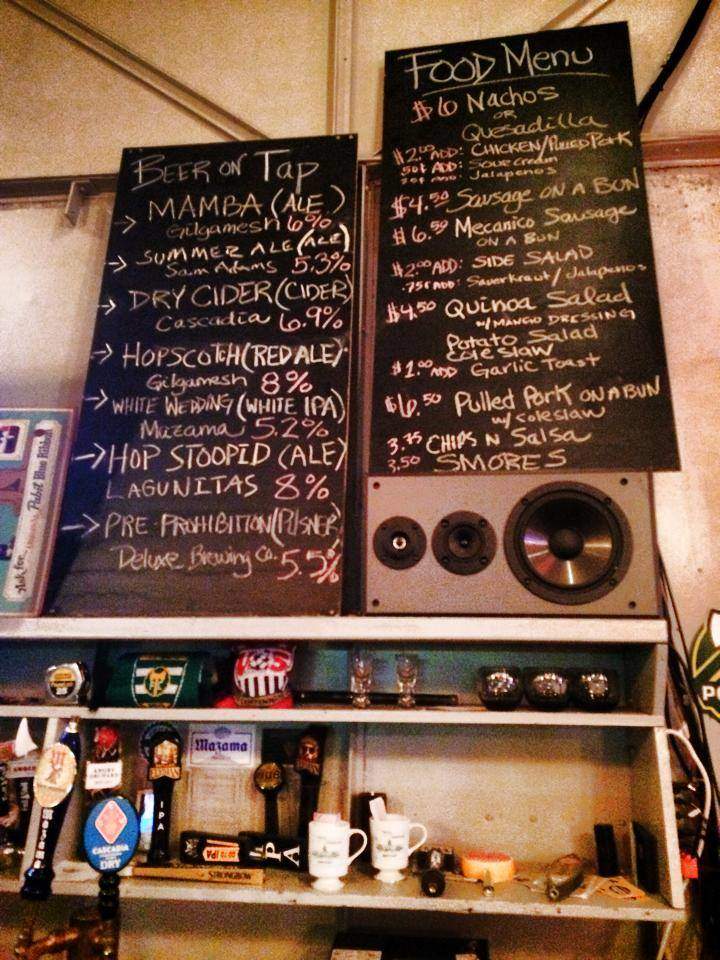 BEER ON TAP
MAMBA (ALE)
Gilgamesh 6%
SUMMER ALE (ALE)
Sam Adams 5.3%
DRY CIDER (CIDER)
Cascadia 6.9%
HOPSCOTCH (RED ALE)
Gilgamesh 8%
WHITE WEDDING (WHITE IPA)
Mazama 5.2%
HOP STOOPID (ALE)
LAGUNITAS 8%
PRE-PROHIBITION (PILSNER)
Deluxe Brewing Co. 5.5%
FOOD Menu
$6 Nachos
OR
Quesadilla
$2.00 ADD: CHICKEN/Pulled Pork
50¢ ADD: Sour cream
Jalapenos
$4.50 Sausage ON A BUN
$6.50 Mecanico Sausage
ON A BUN
$2.00 ADD: SIDE SALAD
.75¢ ADD: Sauerkraut/Jalapenos
$4.50 Quinoa Salad
w/ MANGO DRESSING
Potato Salad
Coleslaw
$1.00 ADD Garlic Toast
$6.50 Pulled Pork ON A BUN
w/ coleslaw
3.75 CHIPS N Salsa
3.50 SMORES
Pabst Blue Ribbon
Mazama
ANGRY
ORCHARD
IPA
CASCADIA
DRY
IPA
IPA
STRONGBOW